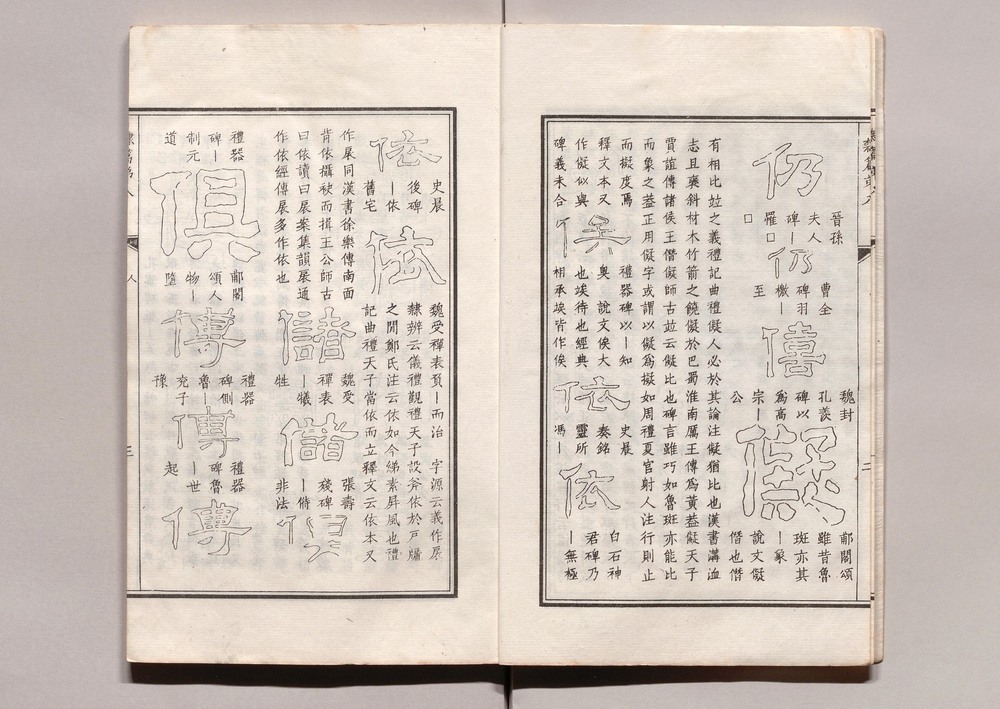 仍
晉孫
夫人
碑丨
罹囗
囗
仍
曹全
碑羽
檄丨
至
僖
魏封
孔羨
碑以
爲高
宗丨
公
儗
郙閣頌
雖昔魯
班亦其
丨象
說文儗
僭也僭
有相比竝之義禮記曲禮儗人必於其論注儗猶比也漢書溝洫
志且襃斜材木竹箭之饒儗於巴蜀淮南厲王傳爲黃蓋儗天子
賈誼傳諸侯王僭儗師古竝云儗比也碑言雖巧如魯班亦能比
而象之蓋正用儗字或謂以儗爲擬如周禮夏官射人注行則止
而擬度焉
釋文本又
作儗似與
碑義未合
俟
禮器碑以丨知
奧 說文俟大
也埃待也經典
相承埃皆作俟
依
史晨
奏銘
靈所
馮丨
依
白石神
君碑乃
丨無極
依
史晨
後碑
丨依
舊宅
依
魏受禪表負丨而治 字源云義作扆
隸辨云儀禮覲禮天子設斧依於戶牖
之閒鄭氏注云依如今綈素屏風也禮
記曲禮天子當依而立釋文云依本又
作扆同漢書徐樂傳南面
背依攝袂而揖王公師古
曰依讀曰扆案集韻扆通
作依經傳扆多作依也
儲
魏受
禪表
丨犧
牲
儲
張壽
殘碑
丨偫
非法
俱
禮器
碑丨
制元
道
俱
郙閣
頌人
物丨
墮
傅
禮器
碑側
魯丨
兗子
豫
傅
禮器
碑魯
丨世
起
傅